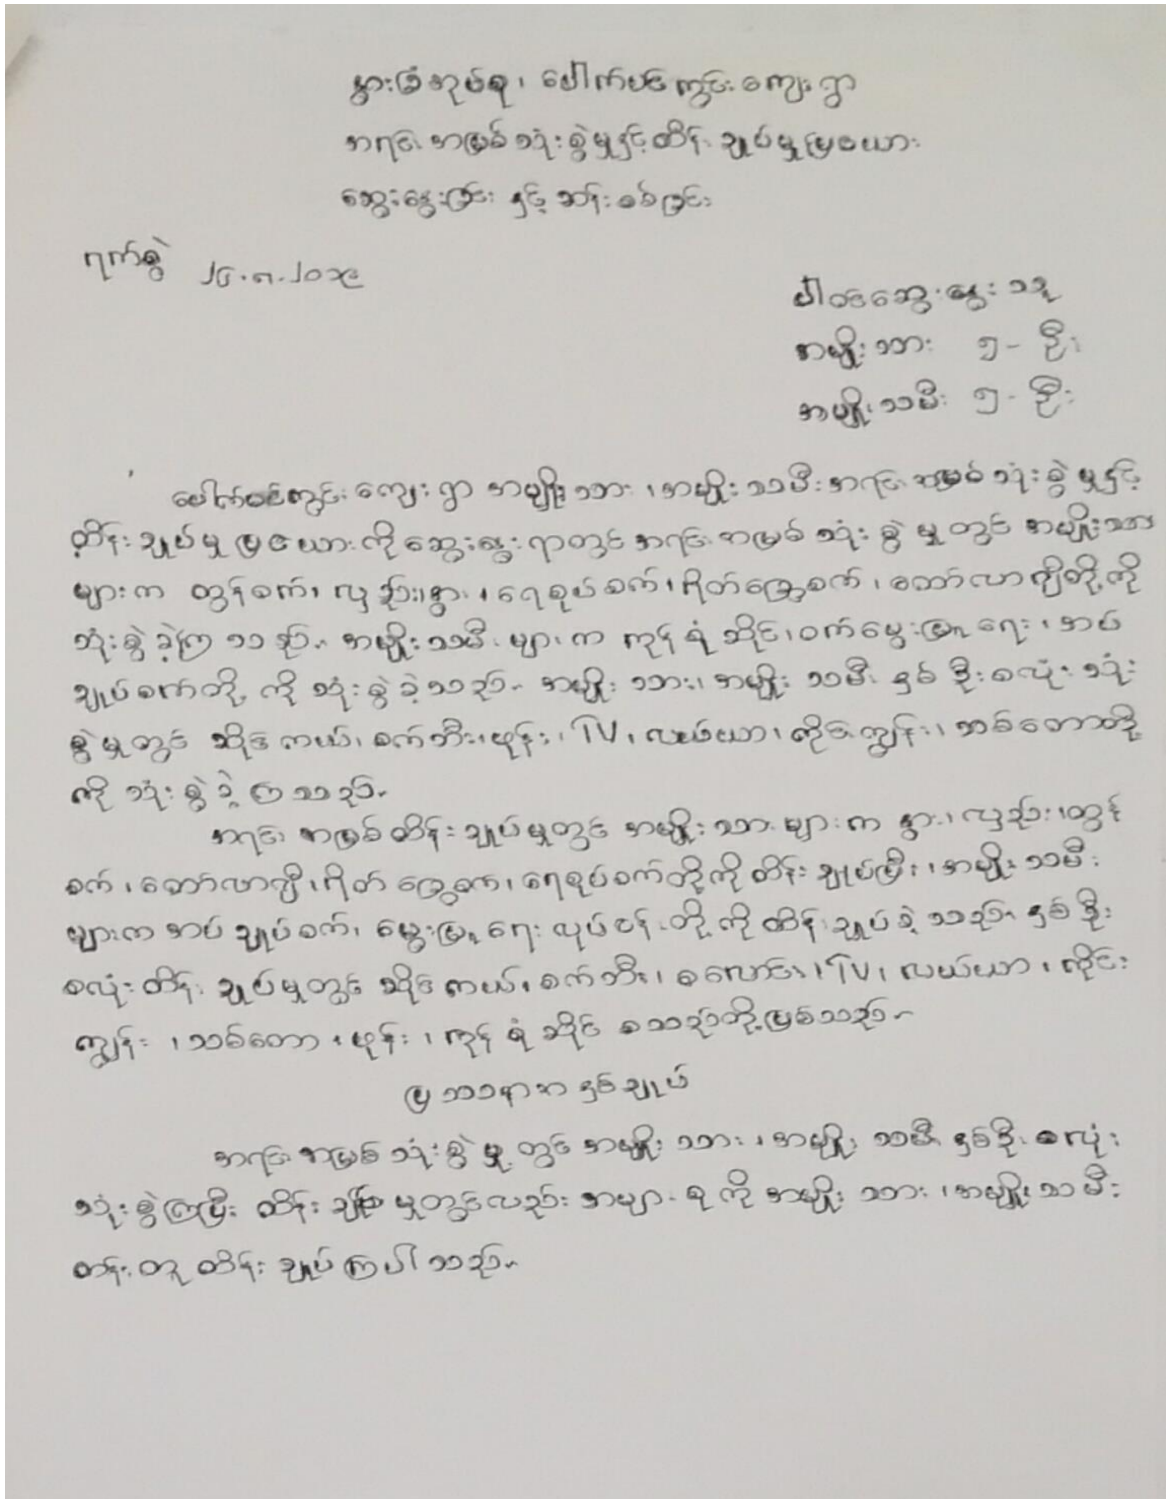 နွားခြံအုပ်စု၊ ပေါက်ပင်ကွင်းကျေးရွာ
အရင်းအမြစ်သုံးစွဲမှုနှင့်ထိန်းချုပ်မှုမြဇယား
ဆွေးနွေးခြင်း နှင့် ဆန်းစစ်ခြင်း
ရက်စွဲ ၂၄.၈.၂၀၁၉
ပါဝင်ဆွေးနွေးသူ
အမျိုးသား ၅- ဦး
အမျိုးသမီး ၅- ဦး
ပေါက်ပင်ကွင်းကျေးရွာ အမျိုးသား၊ အမျိုးသမီးအရင်းအမြစ်သုံးစွဲမှုနှင့်
ထိန်းချုပ်မှု မြဇယားကိုဆွေးနွေးရာတွင် အရင်းအမြစ် သုံးစွဲမှုတွင် အမျိုးသား
များက ထွန်စက်၊ လှည်း၊ နွား၊ ရေစုပ်စက်၊ ရိတ်ခြွေစက်၊ ထော်လာဂျီတို့ကို
သုံးစွဲခဲ့ကြသည်။ အမျိုးသမီးများက ကုန်စုံဆိုင်၊ ဝက်မွေးမြူရေး၊ အပ်
ချုပ်စက်တို့ကို သုံးစွဲခဲ့သည်။ အမျိုးသား၊ အမျိုးသမီး နှစ်ဦးစလုံး သုံး
စွဲမှုတွင် ဆိုင်ကယ်၊ စက်ဘီး၊ ဖုန်း၊ TV၊ လယ်ယာ၊ ကိုင်းကျွန်း၊ သစ်တောတို့
ကို သုံးစွဲခဲ့ကြသည်။
အရင်းအမြစ်ထိန်းချုပ်မှုတွင် အမျိုးသားများက နွား၊ လှည်း၊ ထွန်
စက်၊ ထော်လာဂျီ၊ ရိတ်ခြွေစက်၊ ရေစုပ်စက်တို့ကို ထိန်းချုပ်ပြီး၊ အမျိုးသမီး
များက အပ်ချုပ်စက်၊ မွေးမြူရေးလုပ်ငန်းတို့ကို ထိန်းချုပ်ခဲ့သည်။ နှစ်ဦး
စလုံး ထိန်းချုပ်မှုတွင် ဆိုင်ကယ်၊ စက်ဘီး၊ စလောင်း၊ TV၊ လယ်ယာ၊ ကိုင်း
ကျွန်း၊ သစ်တော၊ ဖုန်း၊ ကုန်စုံဆိုင် စသည်တို့မြစ်သည်။
ပြဿနာအနှစ်ချုပ်
အရင်းအမြစ်သုံးစွဲမှုတွင် အမျိုးသား၊ အမျိုးသမီး နှစ်ဦးစလုံး
သုံးစွဲကြပြီး ထိန်းချုပ်မှုတွင်လည်း အများစုကို အမျိုးသား၊ အမျိုးသမီး
တန်းတူ ထိန်းချုပ်ကြပါသည်။